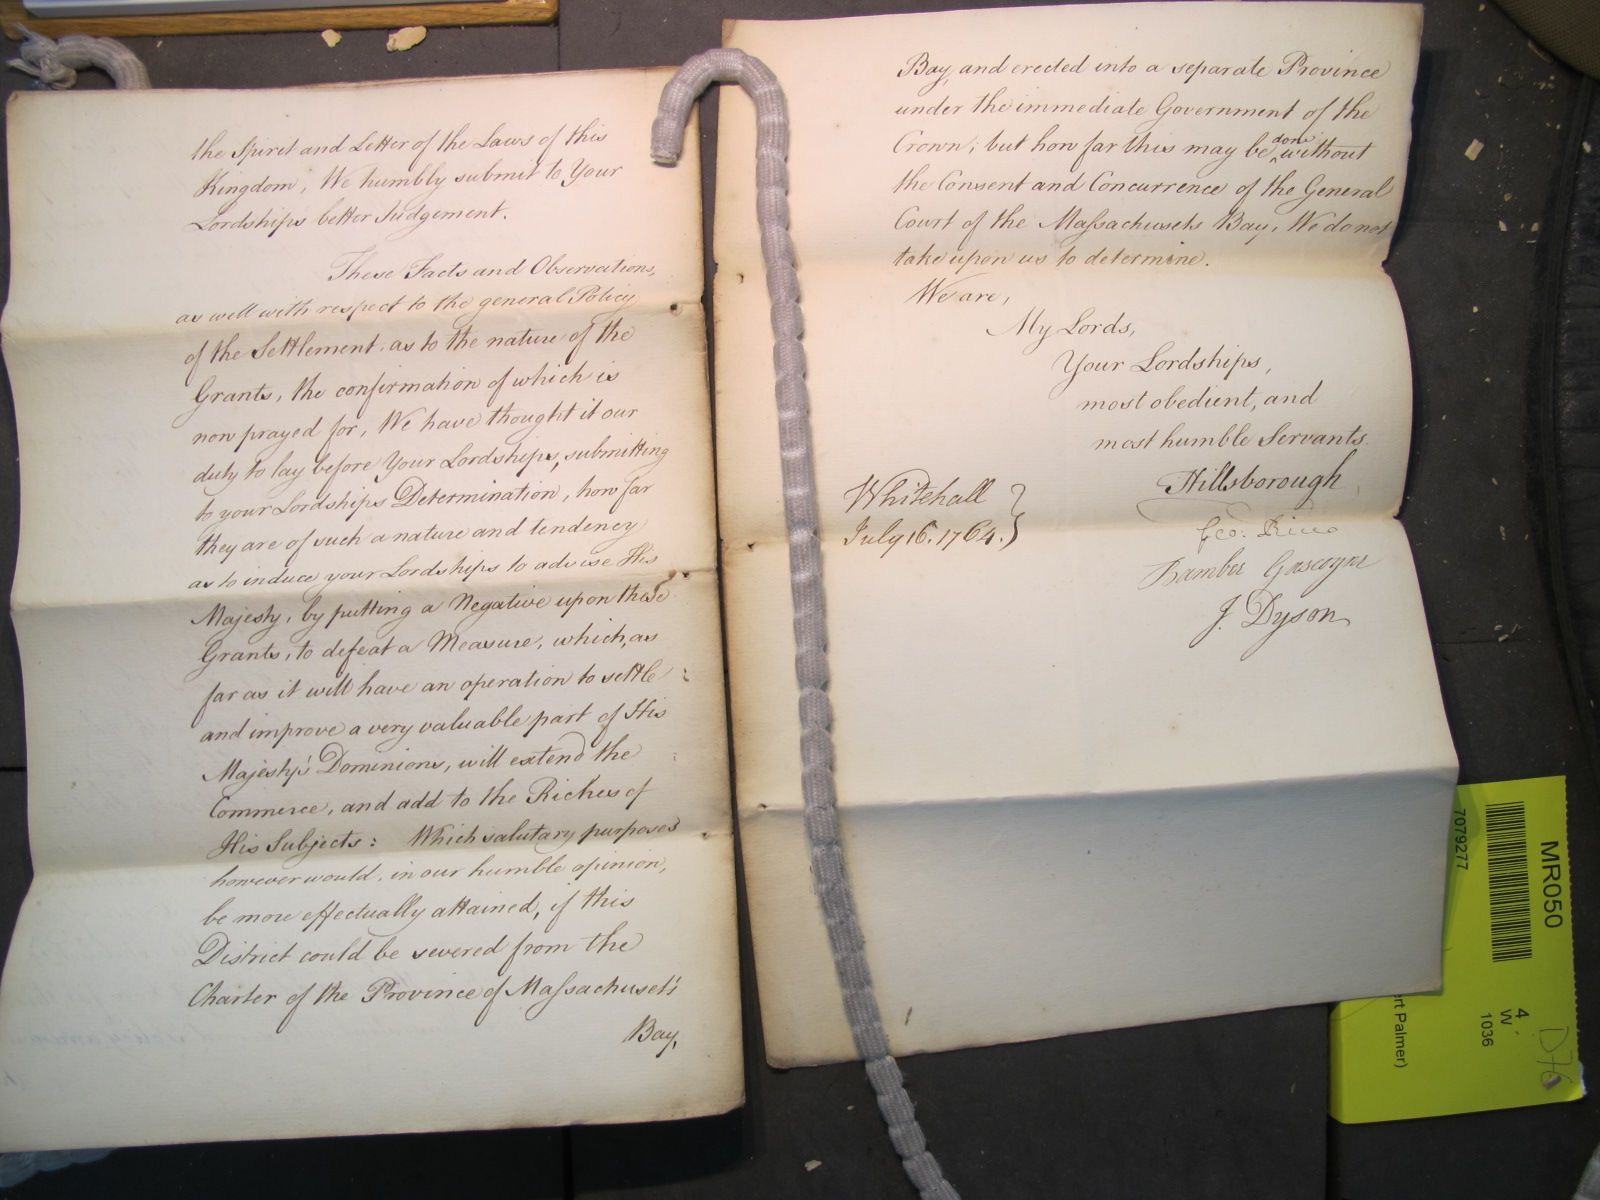 the Spirit and Letter of the Laws of this
Kingdom, We humbly submit to Your
Lordships better Judgement.
These Facts and Observations,
as well with respect to the general Policy
of the Settlement, as to the nature of the
Grants, the confirmation of which is
now prayed for, We have thought it our
duty to lay before Your Lordships, submitting
to your Lordships Determination, how far
they are of such a nature and tendency
as to induce your Lordships to advise His
Majesty, by putting a Negative upon these
Grants, to defeat a Measure, which, as
far as it will have an operation to settle
and improve a very valuable part of His
Majesty's Dominions, will extend the
Commerce, and add to the Riches of
His Subjects: Which salutary purposes
however would, in our humble opinion,
be more effectually attained, if this
District could be severed from the
Charter of the Province of Massachuset's
Bay,
Bay, and erected into a separate Province
under the immediate Government of the
Crown; but how far this may be done without
the Consent and Concurrence of the General
Court of the Massachusets Bay, We do not
take upon us to determine.
We are,
My Lords,
Your Lordships,
most obedient, and
most humble Servants.
Hillsborough
Geo: Rice
Bamber Gascoyne
J. Dyson
Whitehall
July 16. 1764.
MR050
7079277
4
W
1036
ert Palmer)
D76